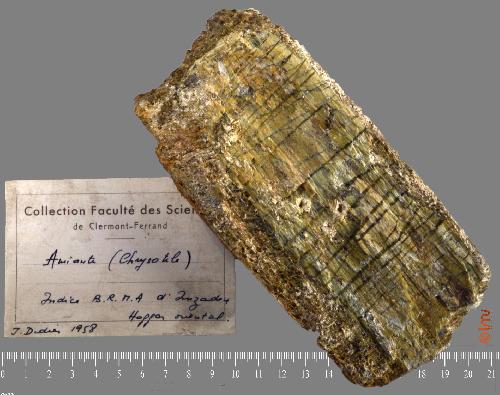 Collection Faculté des Scien
de Clermont-Ferrand
Amiante (Chrysotile)
Indice B.R.M.A d'
Hoggar oriental.
J. Didier 1958
0 1 2 3 4 5 6 7 8 9 10 11 12 13 14 18 19 20 21